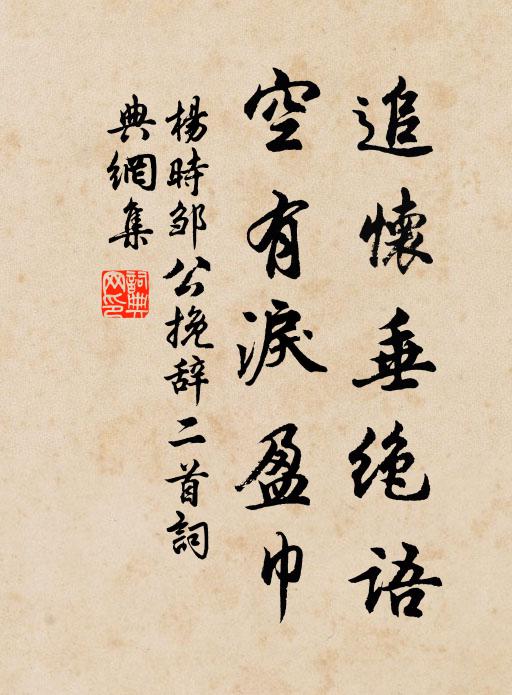 追懷垂绝语
空有淚盈巾
楊時邹公挽辞二首詞
典網集
詞典
网印